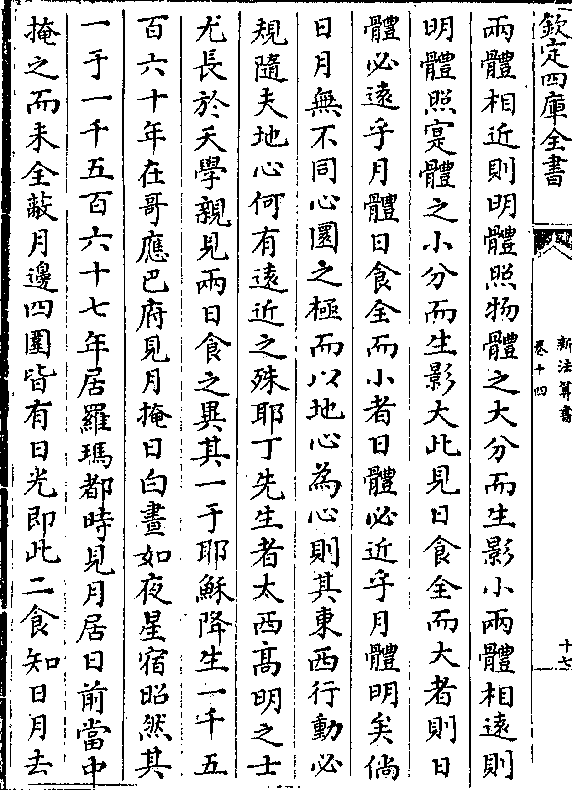 欽定四庫全書
新法算書
卷十四
十七
兩體相近則明體照物體之大分而生影小兩體相遠則
明體照寔體之小分而生影大此見日食全而大者則日
體必遠乎月體日食全而小者日體必近乎月體明矣倘
日月無不同心圜之極而以地心為心則其東西行動必
規隨夫地心何有遠近之殊耶丁先生者太西髙明之士
尤長於天學親見兩日食之異其一于耶穌降生一千五
百六十年在哥應巴府見月掩日白晝如夜星宿昭然其
一于一千五百六十七年居羅瑪都時見月居日前當中
掩之而未全蔽月邊四圍皆有日光即此二食知日月去